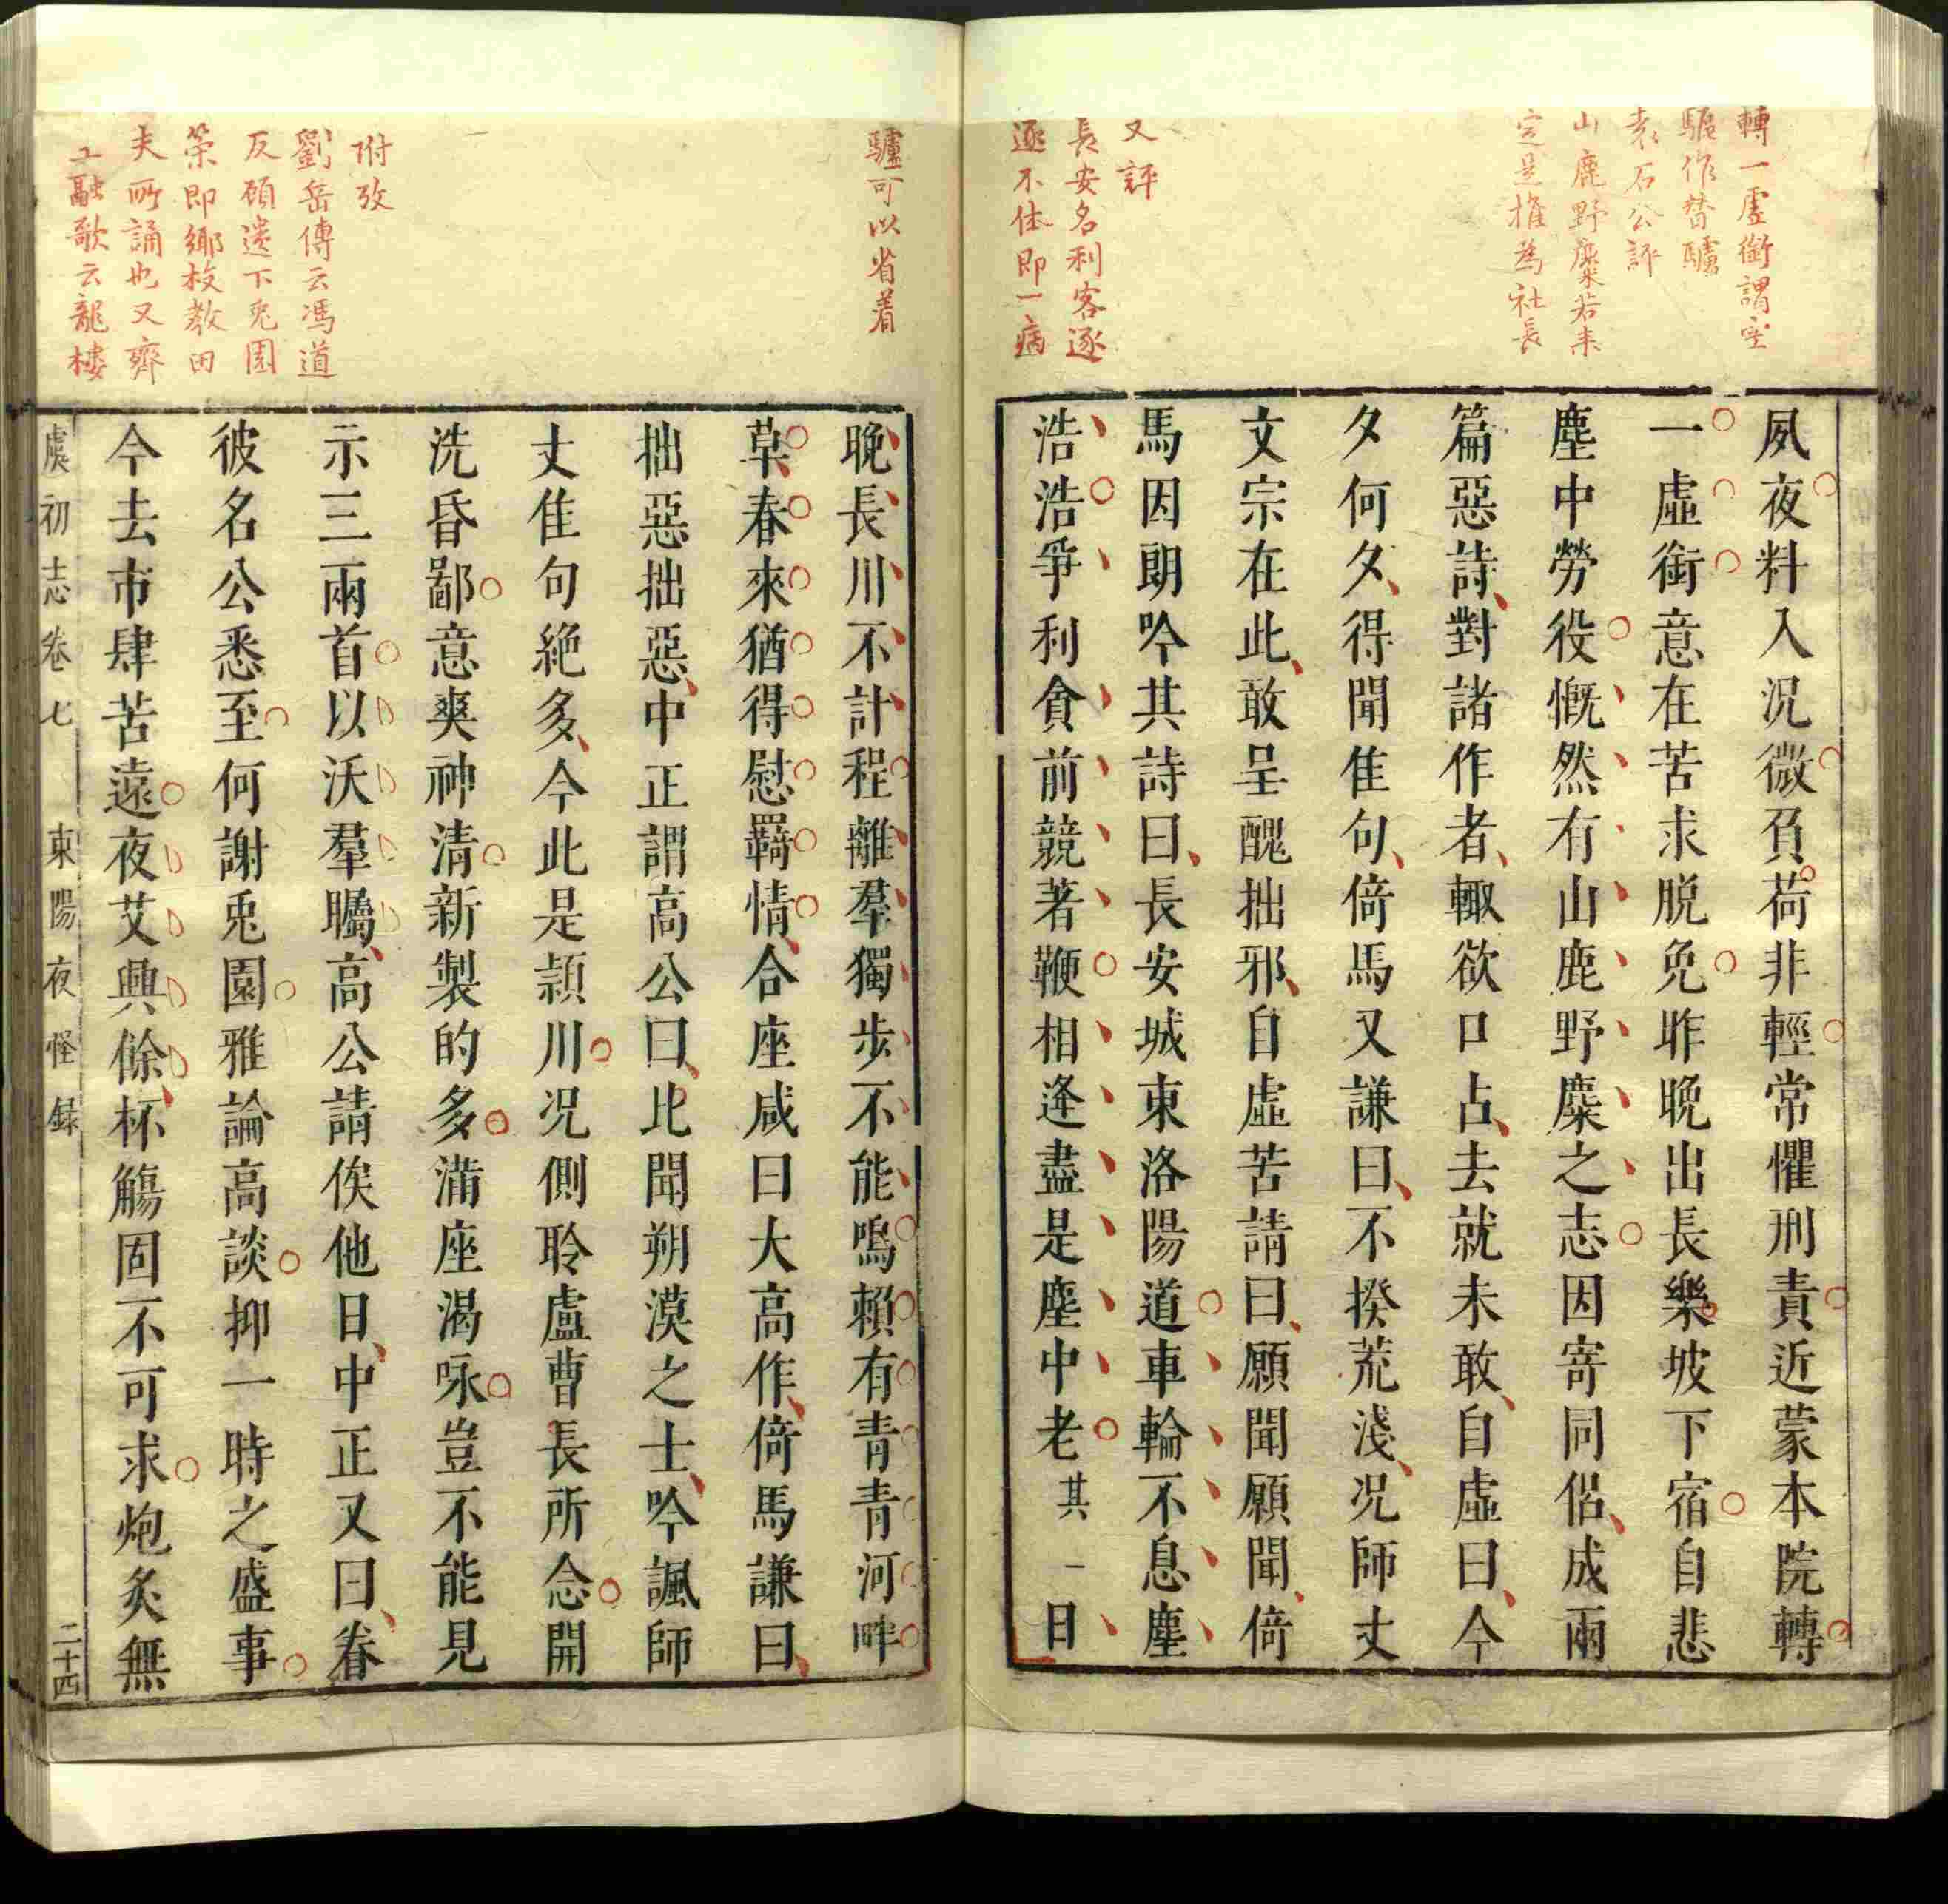 轉一虛銜謂空
驅作替驢
袁石公評
山鹿野麋若來
定是推為社長
又評
長安名利客逐
逐不休即一病
夙夜料入況微負荷非輕常懼刑責近蒙本院轉
一虛銜意在苦求脫免昨晚出長樂坡下宿自悲
塵中勞役慨然有山鹿野麋之志因寄同侶成兩
篇惡詩對諸作者輙欲口占去就未敢自虛曰今
夕何夕得聞佳句倚馬又謙曰不揆荒淺況師丈
文宗在此敢呈醜拙邪自虛苦請曰願聞願聞倚
馬因朗吟其詩曰長安城東洛陽道車輪不息塵
浩浩爭利貪前競著鞭相逢盡是塵中老其一日
驢可以省着
附攷
劉岳傳云馮道
反顧遺下兔園
策即鄉校教田
夫所誦也又齊
王融歌云龍樓
晚長川不計程離羣獨步不能鳴賴有青青河畔
草春來猶得慰羈情合座咸曰大高作倚馬謙曰
拙惡拙惡中正謂高公曰比聞朔漠之士吟諷師
丈佳句絕多今此是頴川况側聆盧曹長所念開
洗昏鄙意爽神清新製的多滿座渴咏豈不能見
示三兩首以沃羣矚高公請俟他日中正又曰眷
彼名公悉至何謝兎園雅論高談抑一時之盛事
今去市肆苦遠夜艾興餘杯觴固不可求炮炙無
虞初志卷七 東陽夜怪録 二十四